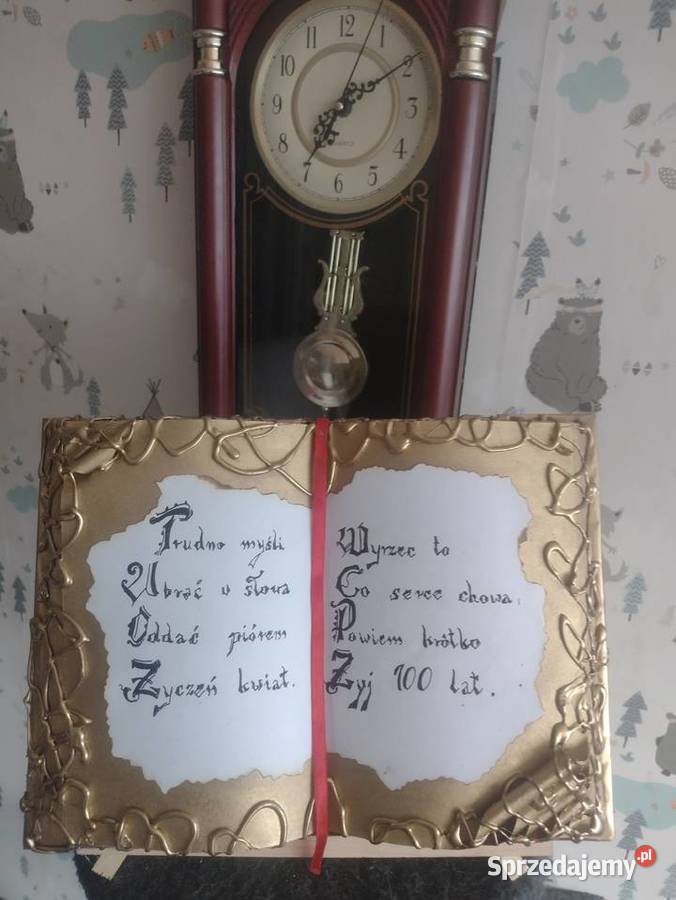 11 12 1
10 2
9 3
8 4
7 6 5
Trudno myśli
Ubrać w słowa
Oddać piórem
Zyczeń kwiat.
Wyrzec to
Co serce chowa,
Powiem krótko
Zyj 100 lat.
Sprzedajemy.pl